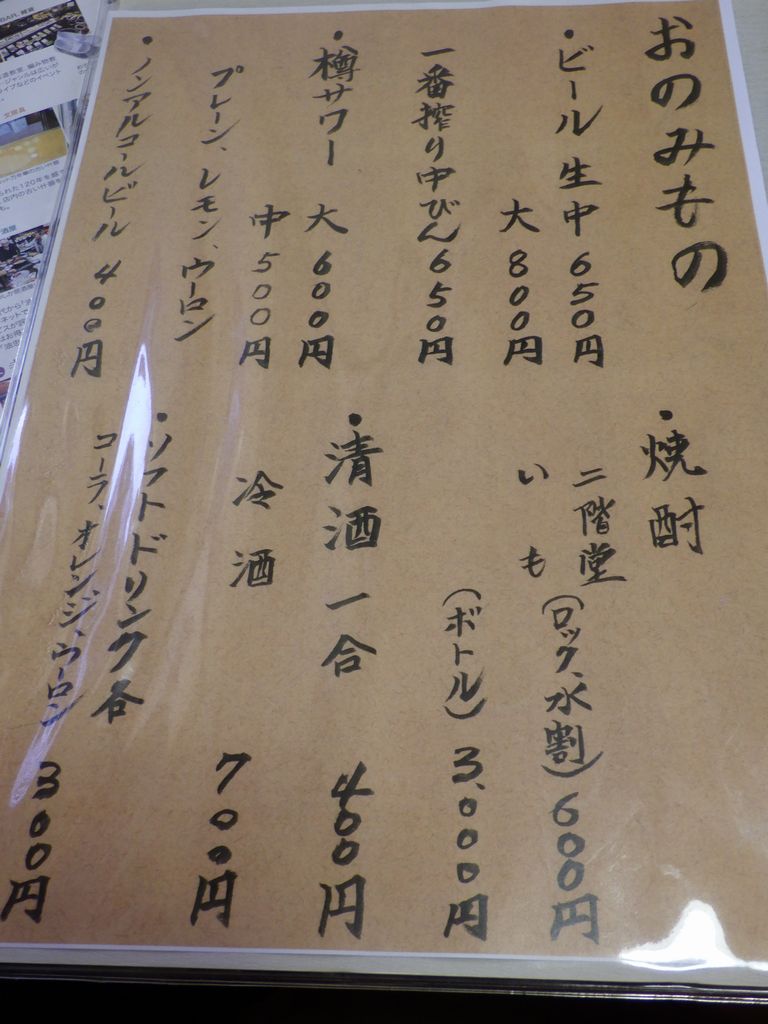 おのみもの
・ビール 生中 650円
大 800円
一番搾り中びん 650円
・樽サワー 大 600円
中 500円
プレーン、レモン、ウーロン
・ノンアルコールビール 400円
・焼酎
二階堂 (ロック、水割) 600円
いも
(ボトル) 3,000円
・清酒 一合 400円
冷酒 700円
・ソフトドリンク各
コーラ、オレンジ、ウーロン 300円